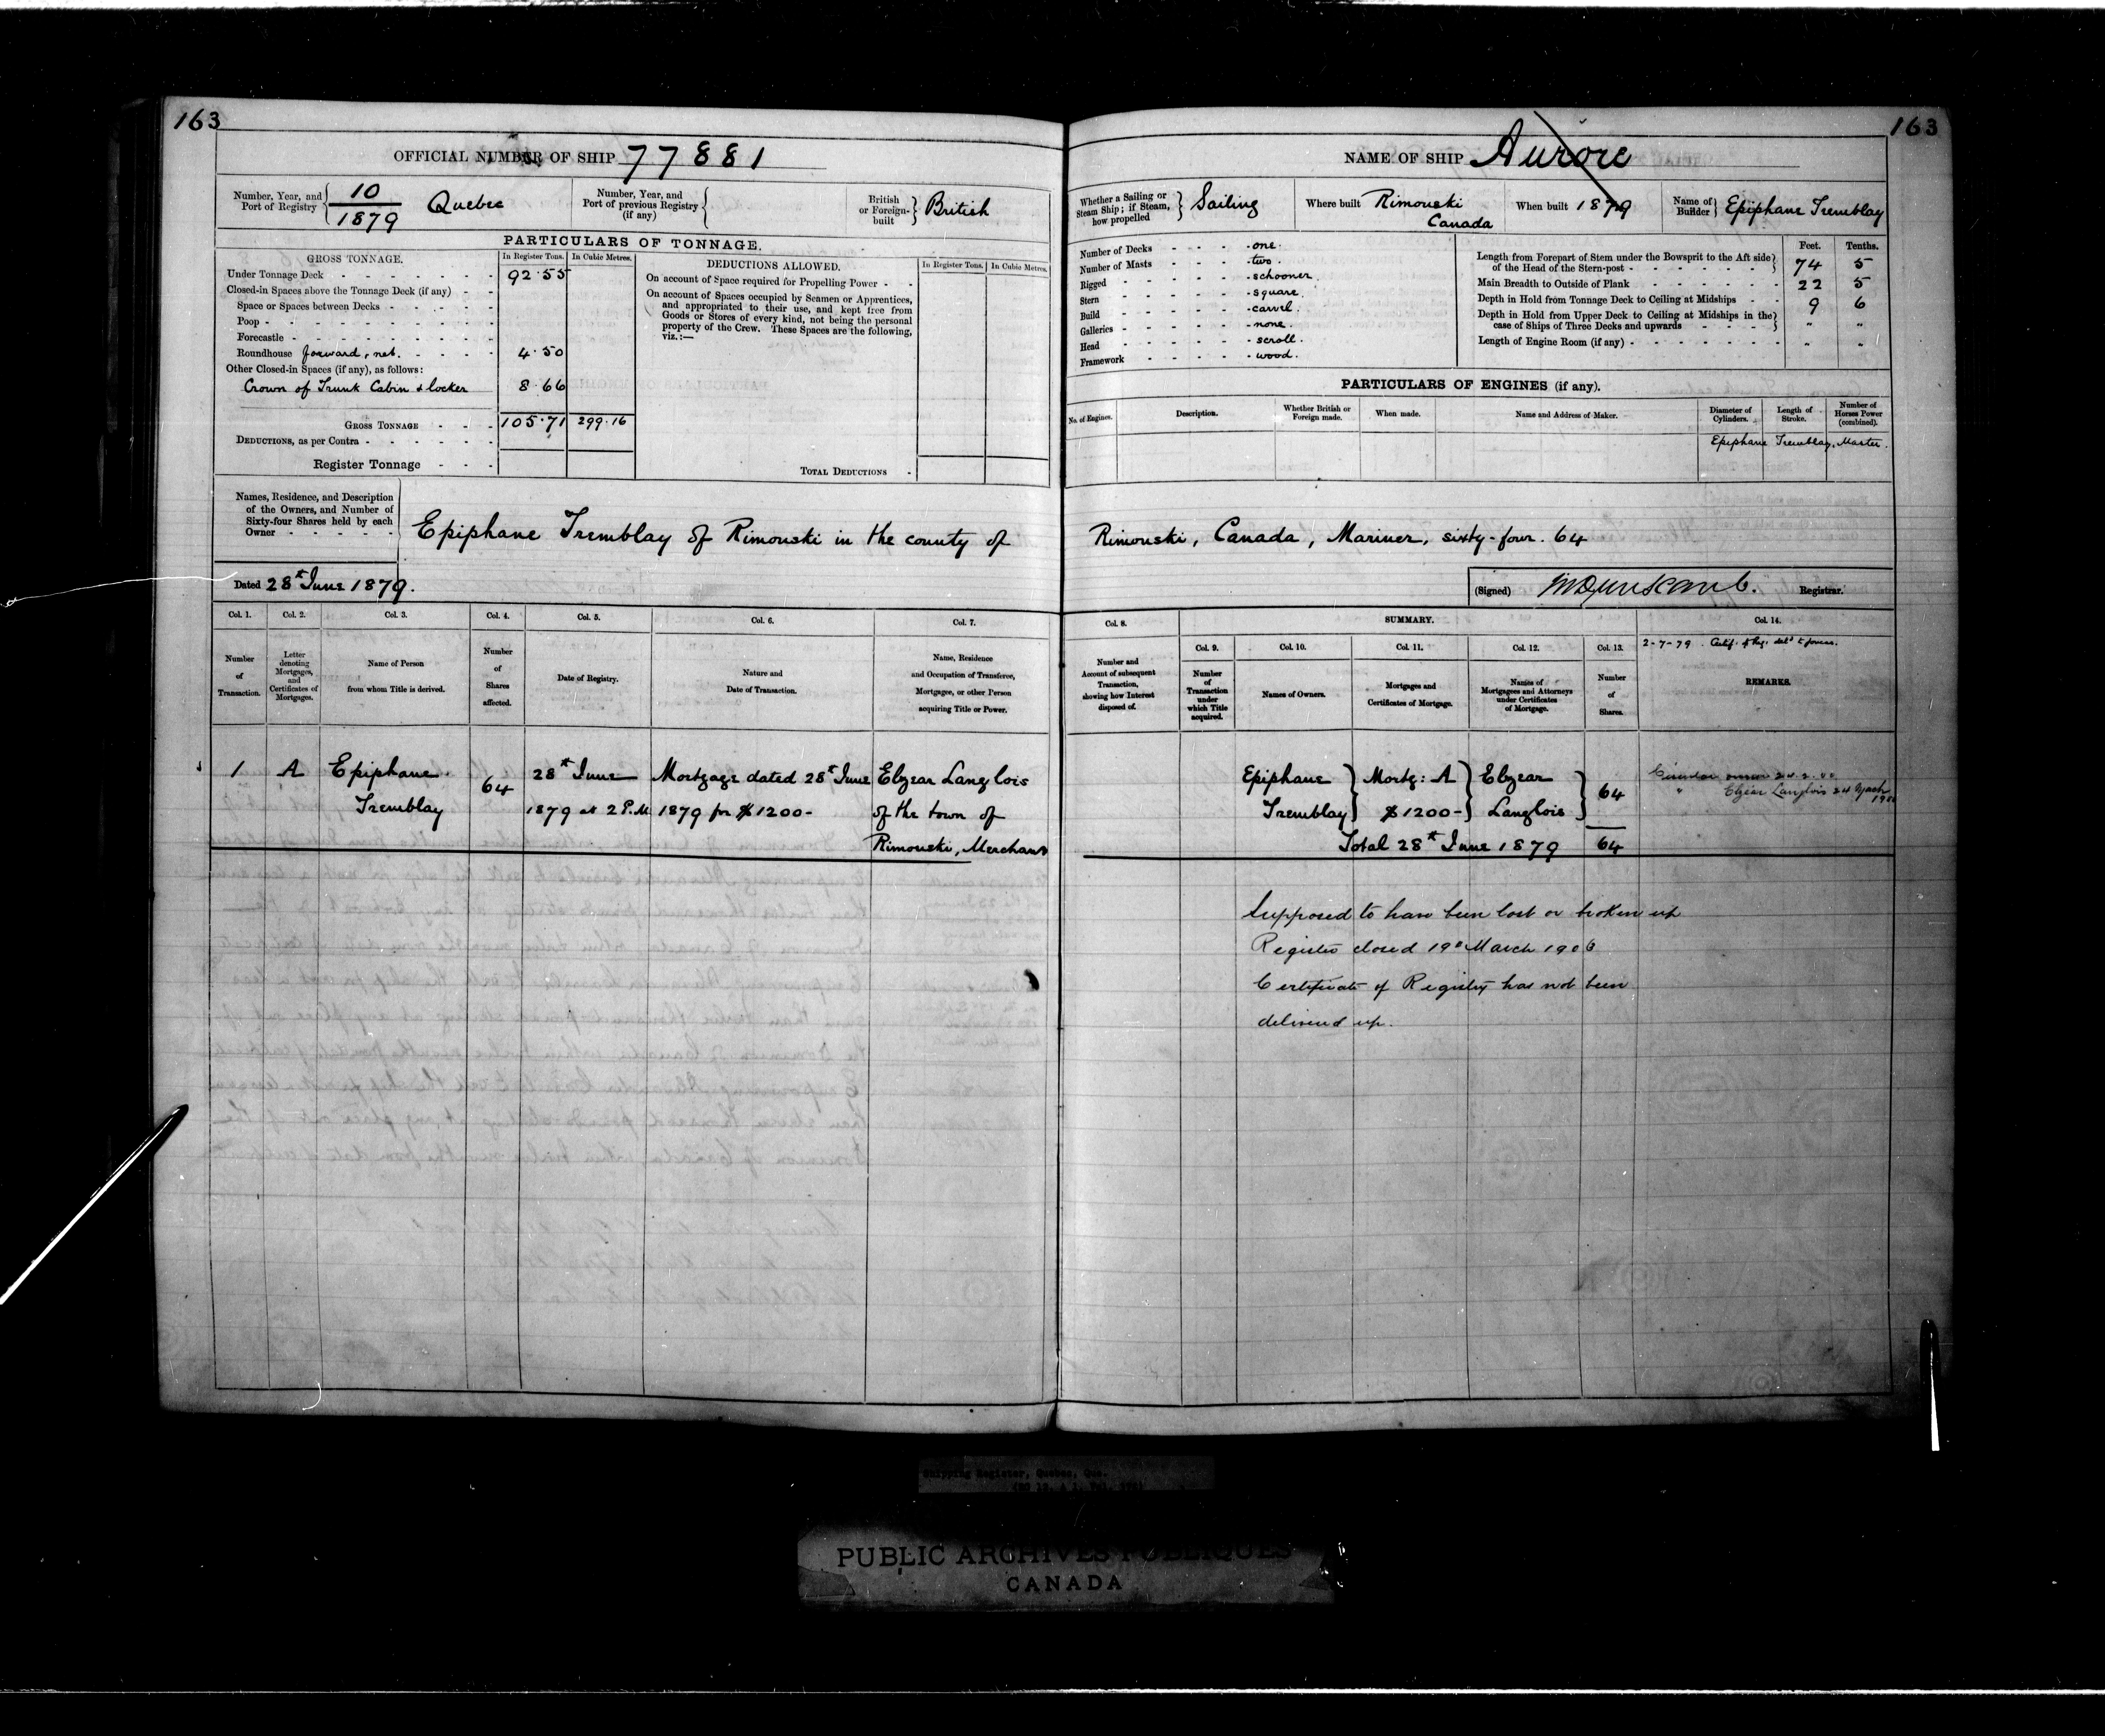 163
OFFICIAL NUMBER OF SHIP 77881
Number, Year, and Port of Registry 10/1879 Quebec
Number, Year, and Port of previous Registry (if any)
British or Foreign-built British
PARTICULARS OF TONNAGE.
GROSS TONNAGE. In Register Tons. In Cubic Metres.
Under Tonnage Deck - - - - - - - 92.55
Closed-in Spaces above the Tonnage Deck (if any) - -
Space or Spaces between Decks - - - - -
Poop - - - - - - - - -
Forecastle - - - - - - - -
Roundhouse forward, net. - - - - 4.50
Other Closed-in Spaces (if any), as follows:
Crown of Trunk Cabin & locker 8.66
GROSS TONNAGE - - - 105.71 299.16
DEDUCTIONS, as per Contra - - - - - -
Register Tonnage - - -
DEDUCTIONS ALLOWED. In Register Tons. In Cubic Metres.
On account of Space required for Propelling Power - -
On account of Spaces occupied by Seamen or Apprentices,
and appropriated to their use, and kept free from
Goods or Stores of every kind, not being the personal
property of the Crew. These Spaces are the following,
viz.:—
TOTAL DEDUCTIONS -
Names, Residence, and Description
of the Owners, and Number of
Sixty-four Shares held by each
Owner - - - - -
Epiphane Tremblay of Rimouski in the county of
Dated 28th June 1879.
Col. 1. Col. 2. Col. 3. Col. 4. Col. 5. Col. 6. Col. 7.
Number of Transaction.
Letter denoting Mortgages, and Certificates of Mortgages.
Name of Person from whom Title is derived.
Number of Shares affected.
Date of Registry.
Nature and Date of Transaction.
Name, Residence and Occupation of Transferee, Mortgagee, or other Person acquiring Title or Power.
1 A Epiphane 64 28th June Mortgage dated 28th June Elzear Langlois
Tremblay 1879 at 2 P.M 1879 for $1200- of the town of
Rimouski, Merchant
163
NAME OF SHIP Aurore
Whether a Sailing or Steam Ship; if Steam, how propelled Sailing
Where built Rimouski Canada
When built 1879
Name of Builder Epiphane Tremblay
Number of Decks - - - - one.
Number of Masts - - - - two.
Rigged - - - - - schooner.
Stern - - - - - square.
Build - - - - - carvel.
Galleries - - - - - none.
Head - - - - - scroll.
Framework - - - - - wood.
Feet. Tenths.
Length from Forepart of Stem under the Bowsprit to the Aft side
of the Head of the Stern-post - - - - - - 74 5
Main Breadth to Outside of Plank - - - - - - 22 5
Depth in Hold from Tonnage Deck to Ceiling at Midships - - 9 6
Depth in Hold from Upper Deck to Ceiling at Midships in the
case of Ships of Three Decks and upwards - - - - " "
Length of Engine Room (if any) - - - - - - - " "
PARTICULARS OF ENGINES (if any).
No. of Engines. Description. Whether British or Foreign made. When made. Name and Address of Maker. Diameter of Cylinders. Length of Stroke. Number of Horses Power (combined).
Epiphane Tremblay, Master.
Rimouski, Canada, Mariner, sixty-four. 64
(Signed) Registrar.
Col. 8. SUMMARY. Col. 14.
Col. 9. Col. 10. Col. 11. Col. 12. Col. 13.
Number and Account of subsequent Transaction, showing how Interest disposed of.
Number of Transaction under which Title acquired.
Names of Owners.
Mortgages and Certificates of Mortgage.
Names of Mortgagees and Attorneys under Certificates of Mortgage.
Number of Shares.
2-7-79. Certif. of Reg.
REMARKS.
Epiphane Mortg: A Elzear 64
Tremblay $1200- Langlois
Elzear Langlois
Total 28th June 1879 64
Supposed to have been lost or broken up
Register closed 19th March 1906
Certificate of Registry has not been
delivered up.
Shipping Register, Quebec, Que.
PUBLIC ARCHIVES PUBLIQUES
CANADA